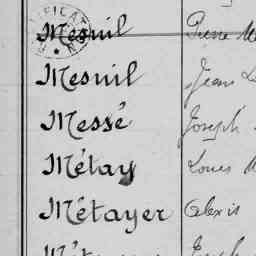 Mesnil Pierre M
Mesnil Jean L
Messé Joseph
Métay Louis M
Métayer Alexis